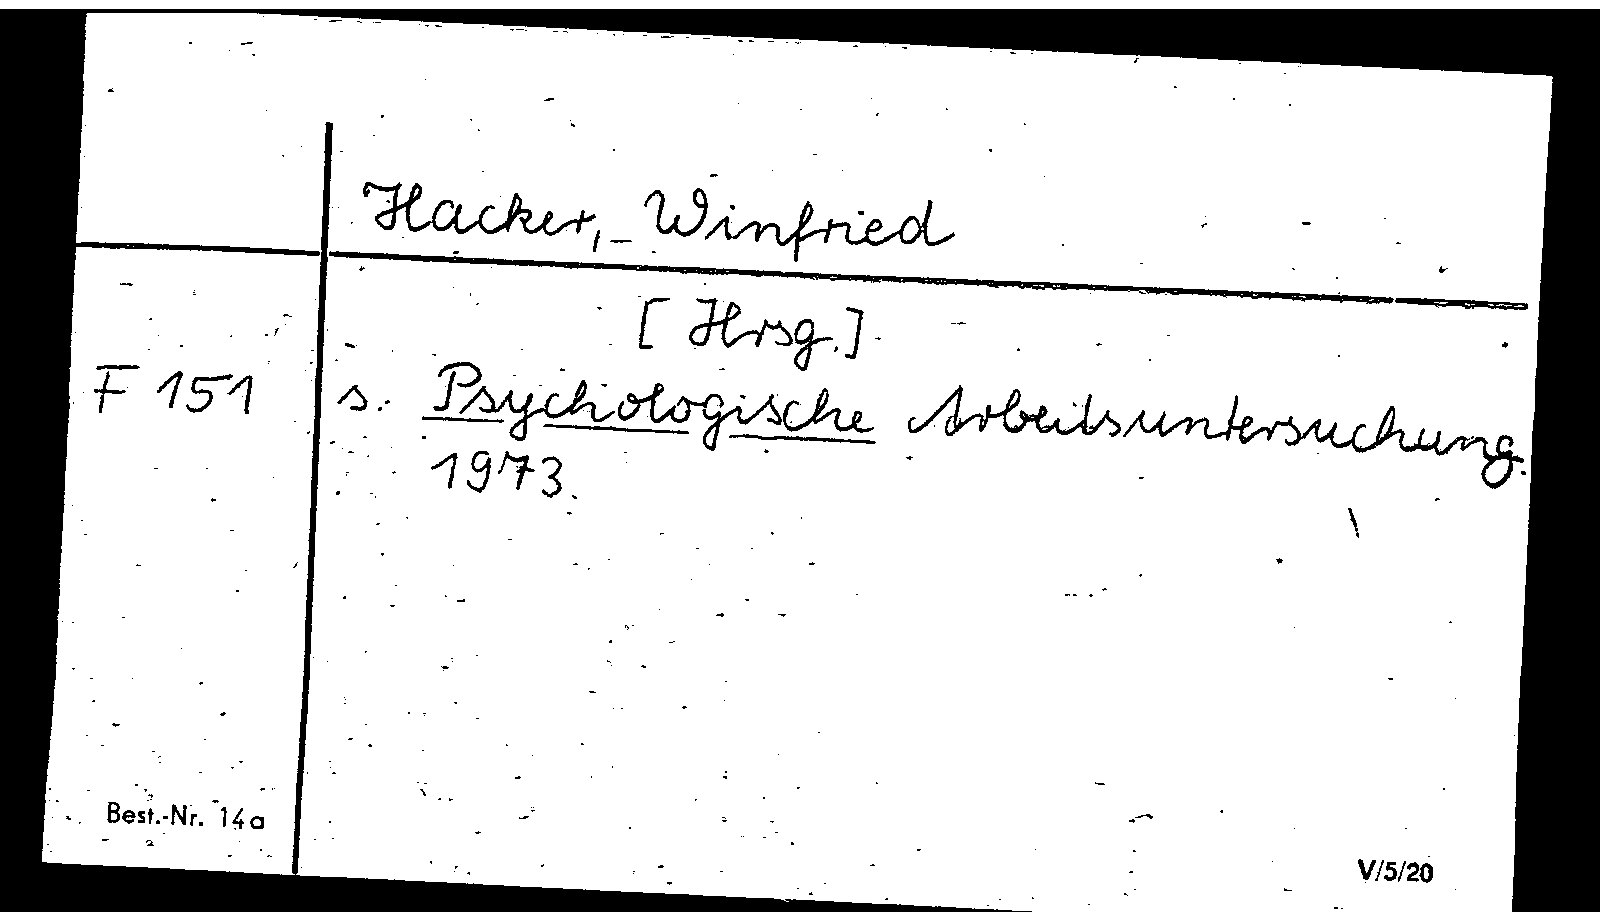 Hacker, Winfried
[Hrsg.]
F 151 s. Psychologische Arbeitsuntersuchung.
1973.
Best.-Nr. 14a
V/5/20